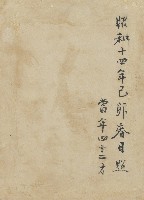 昭和十四年己卯春日照
當年四十二才